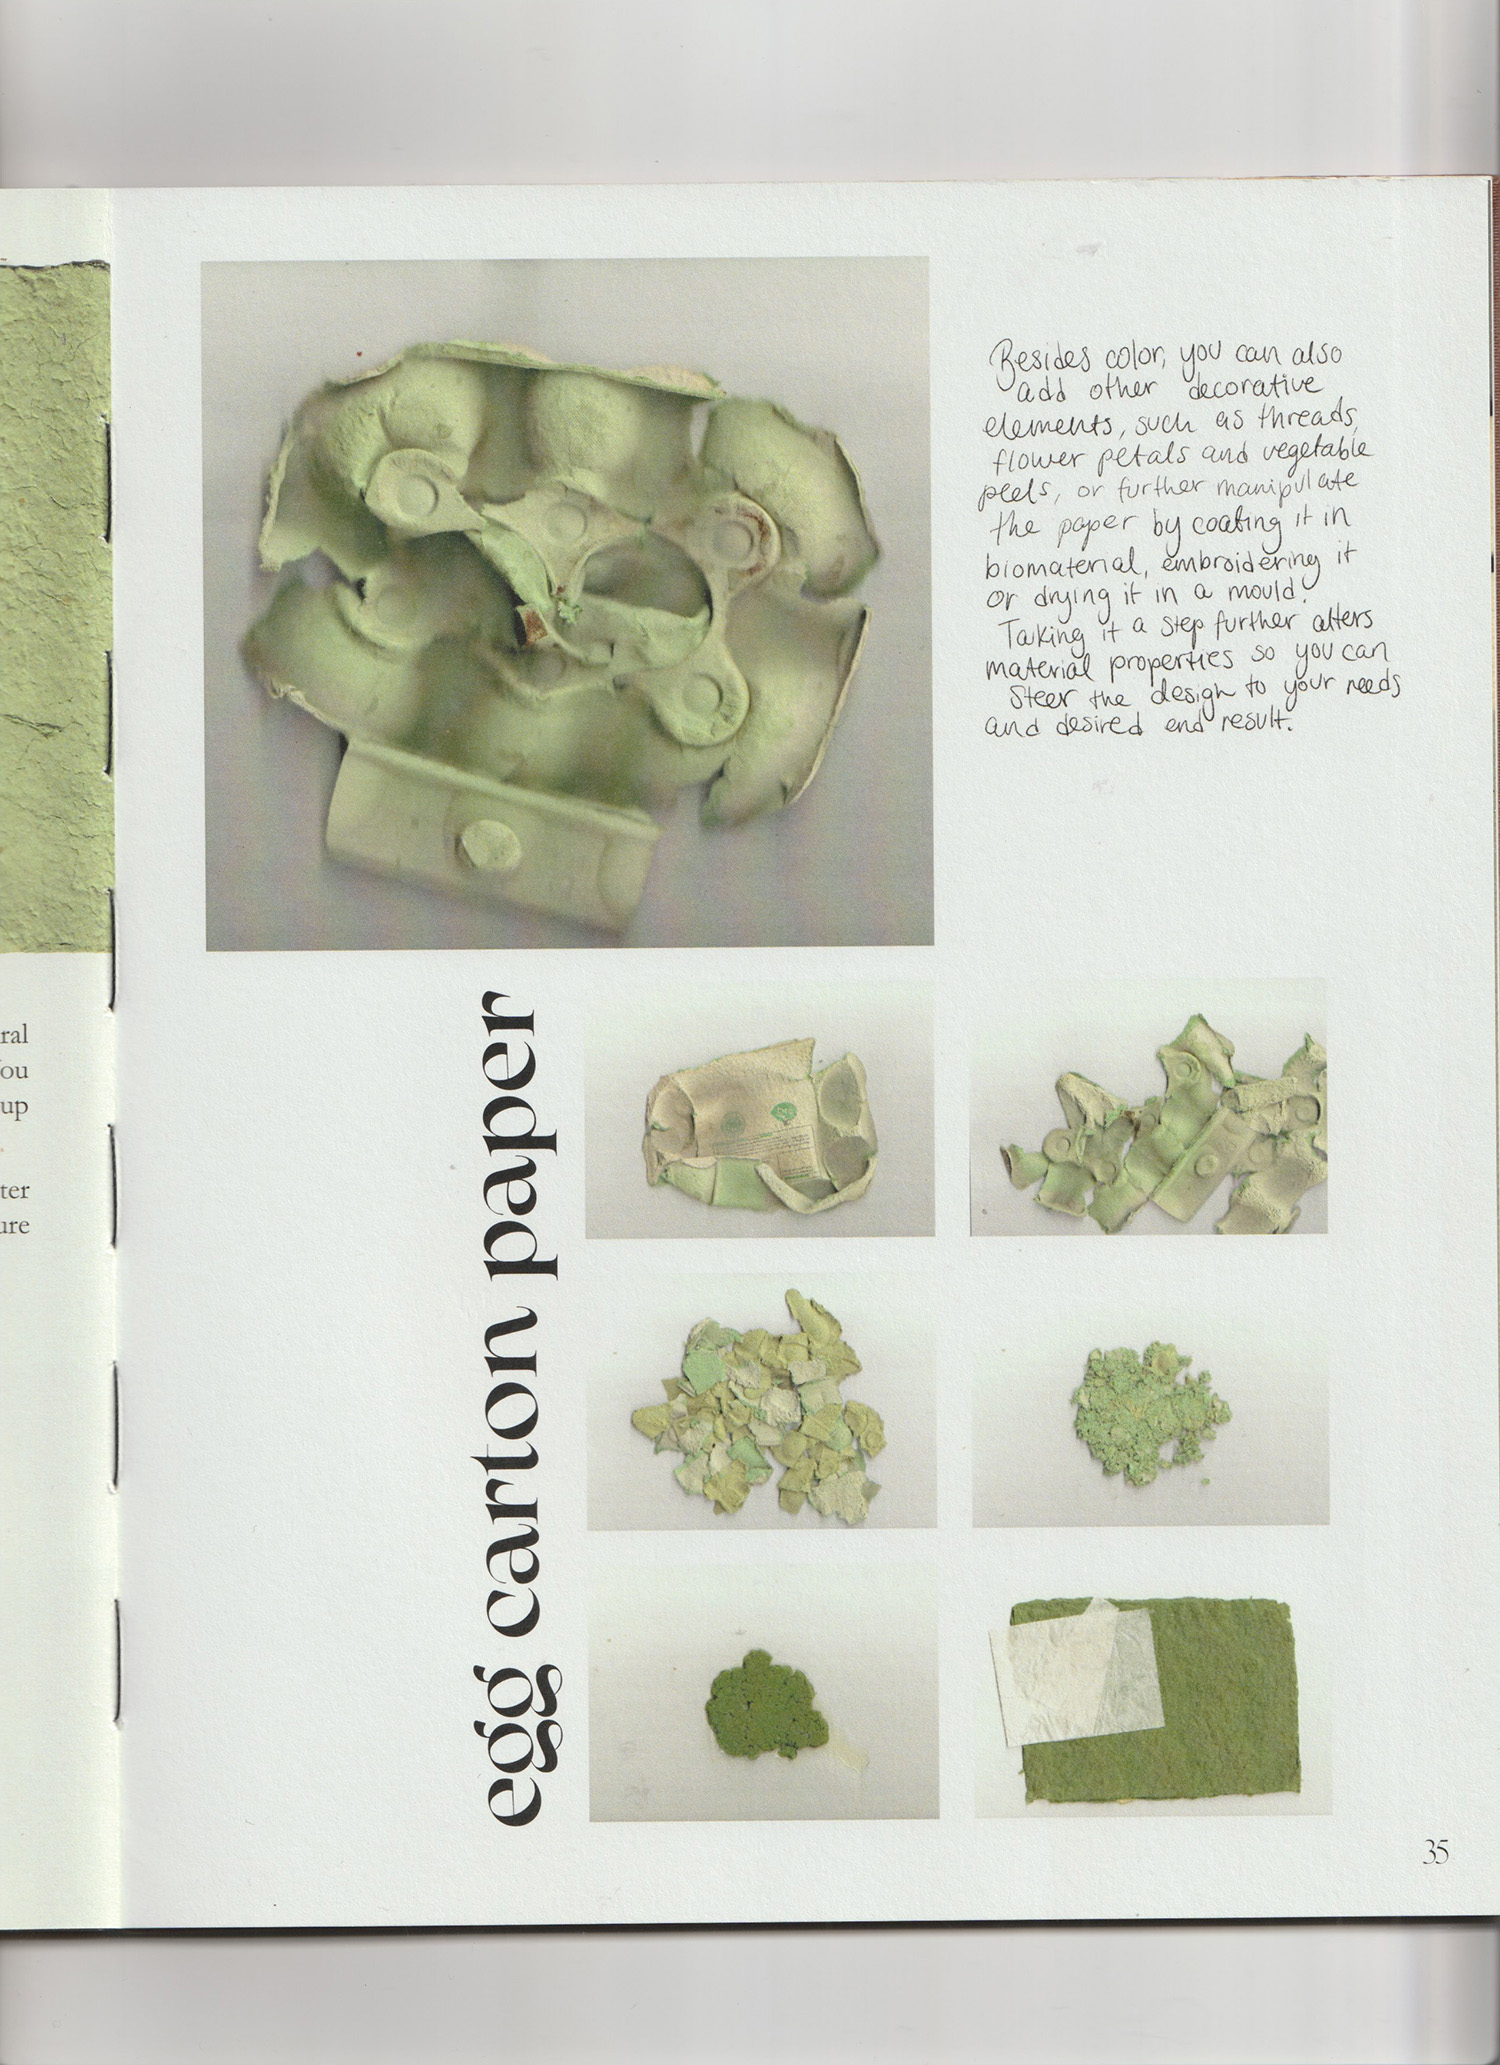 ral
You
up
ter
ure
Besides color, you can also
add other decorative
elements, such as threads,
flower petals and vegetable
peels, or further manipulate
the paper by coating it in
biomaterial, embroidering it
or drying it in a mould.
Taking it a step further alters
material properties so you can
steer the design to your needs
and desired end result.
egg carton paper
35